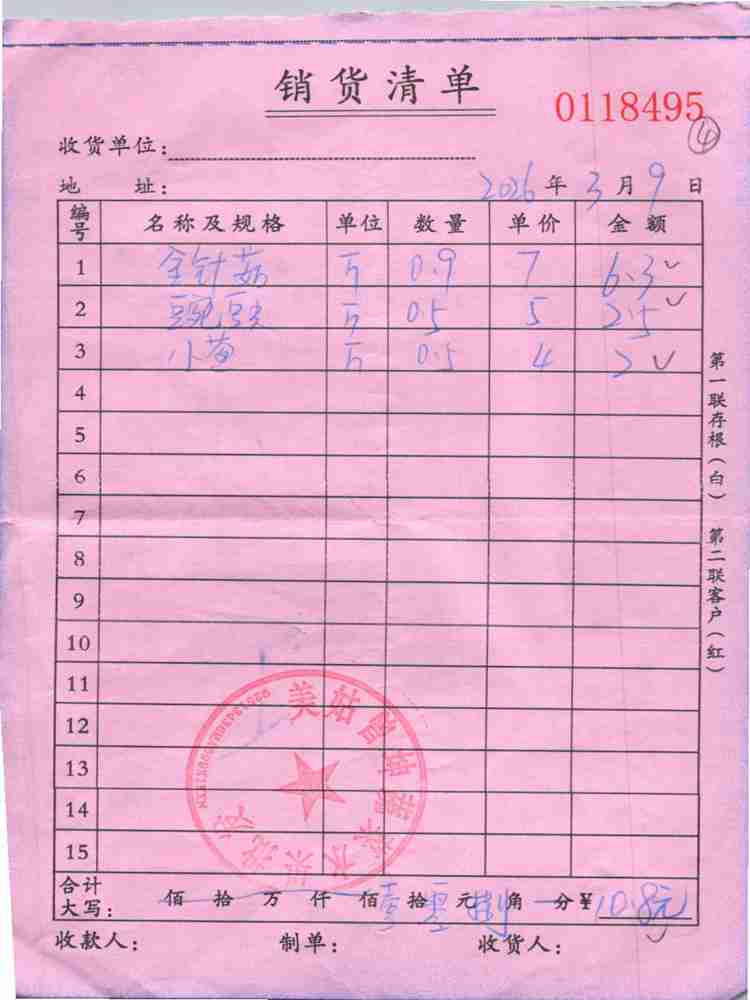 销货清单
0118495
④
收货单位：
地 址： 2026年3月9日
编号 名称及规格 单位 数量 单价 金额
1 金针菇 斤 0.9 7 6.3
2 豌豆尖 斤 0.5 5 2.5
3 小 斤 0.5 4 2
4
5
6
7
8
9
10
11
12
13
14
15
合计大写： 佰 拾 万 仟 佰 壹拾 零元 捌角 分¥ 10.8元
收款人： 制单： 收货人：
第一联存根（白） 第二联客户（红）
美姑